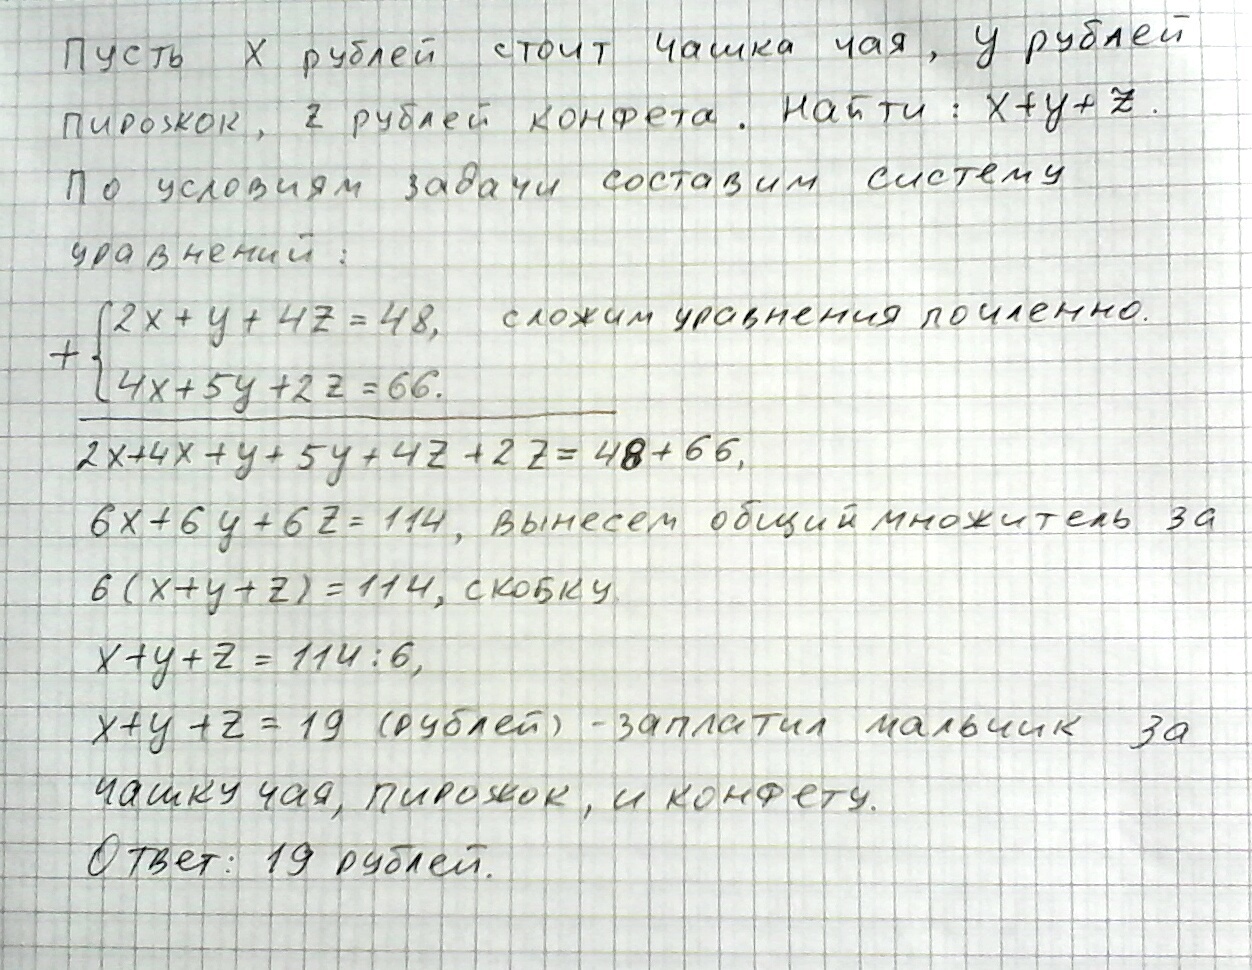 Пусть x рублей стоит чашка чая, y рублей
пирожок, z рублей конфета. Найти: x+y+z.
По условиям задачи составим систему
уравнений:
2x+y+4z=48, сложим уравнения почленно.
+{
4x+5y+2z=66.
2x+4x+y+5y+4z+2z=48+66,
6x+6y+6z=114, вынесем общий множитель за
6(x+y+z)=114, скобку.
x+y+z=114:6,
x+y+z=19 (рублей) - заплатил мальчик за
чашку чая, пирожок, и конфету.
Ответ: 19 рублей.